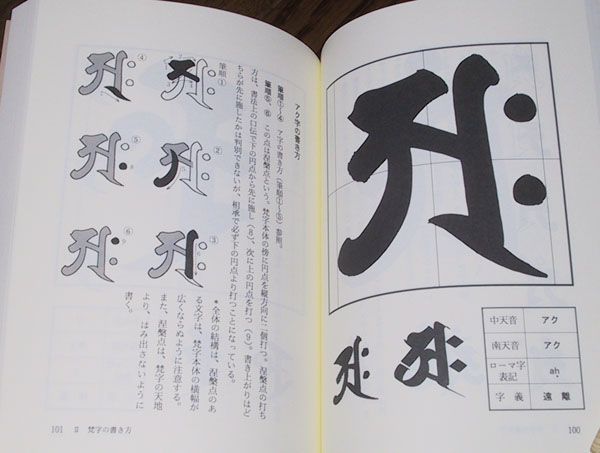 𑖀𑖾
𑖀𑖾
𑖀𑖾
中天音 アク
南天音 アク
ローマ字表記 aḥ
字義 遠離
100
アク字の書き方
筆順①〜④ ア字の書き方（筆順①〜③）参照。
筆順⑤、⑥ この点は涅槃点という。梵字本体の傍に円点を縦方向に二個打つ。涅槃点の打ち
方は、書法上の口伝で下の円点から先に施し（8）、次に上の円点を打つ（9）。書き上がりはど
ちらが先に施したかは判別できないが、相承で必ず下の円点より打つことになっている。
＊全体の結構は、涅槃点のあ
る文字は、梵字本体の横幅が
広くならぬように注意する。
また、涅槃点は、梵字の天地
より、はみ出さないように
書く。
筆順①
②
③
④
⑤
⑥
101 Ⅱ 梵字の書き方